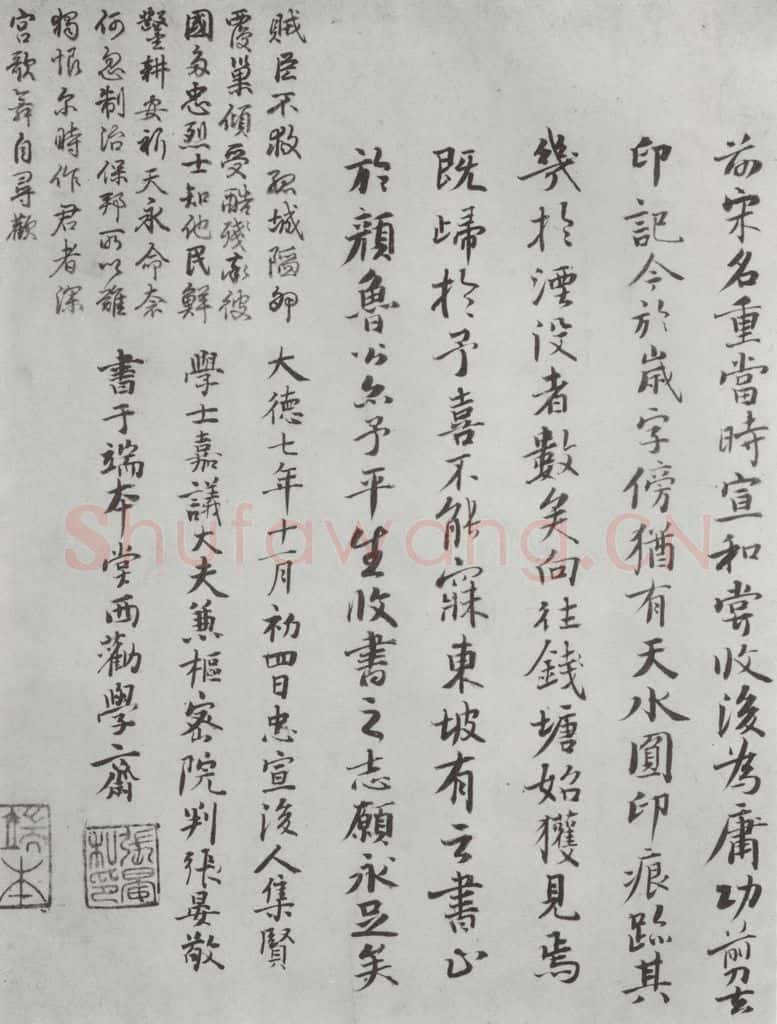 前宋名重當時宣和嘗收後為庸功剪去
印記今於歲字傍猶有天水圓印痕跡其
幾於湮没者數矣向在錢塘始獲見焉
既歸於予喜不能寐東坡有云書止
於顏魯公亦予平生收書之志願永足矣
大德七年十一月初四日忠宣後人集賢
學士嘉議大夫兼樞密院判張晏敬
書于端本堂西勸學齋
賊臣不救孤城隔卵
覆巢傾受酷殘彼
國多忠烈士知他民鮮
鑿耕安祈天永命奈
何忽制治保邦所以難
獨恨尔時作君者深
宮歌舞自尋歡
張晏私印
端本
Shufawang.CN